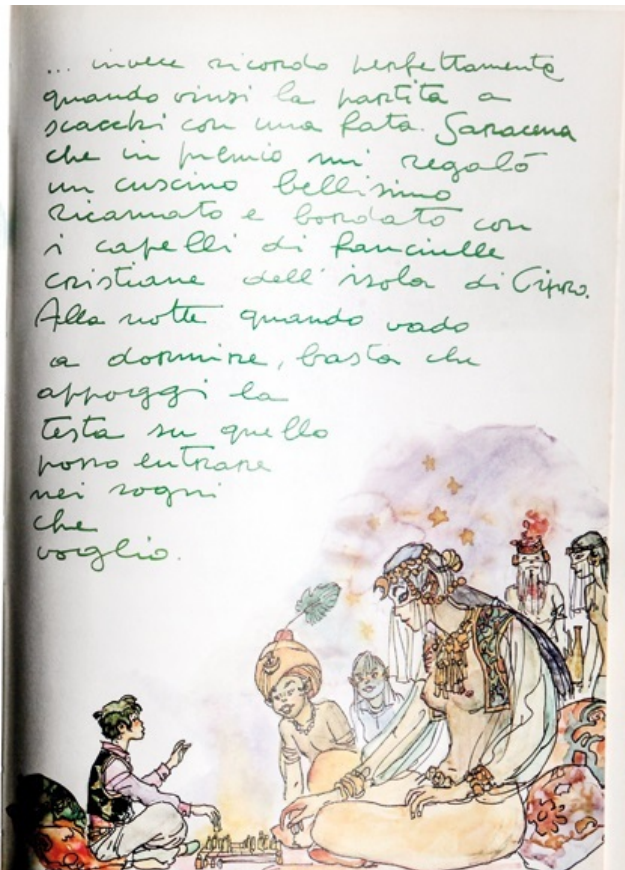 ... invece ricordo perfettamente
quando vinsi la partita a
scacchi con una fata Saracena
che in premio mi regalò
un cuscino bellissimo
ricamato e bordato con
i capelli di fanciulle
cristiane dell'isola di Cipro.
Alla notte quando vado
a dormire, basta che
appoggi la
testa su quello
posso entrare
nei sogni
che
voglio.